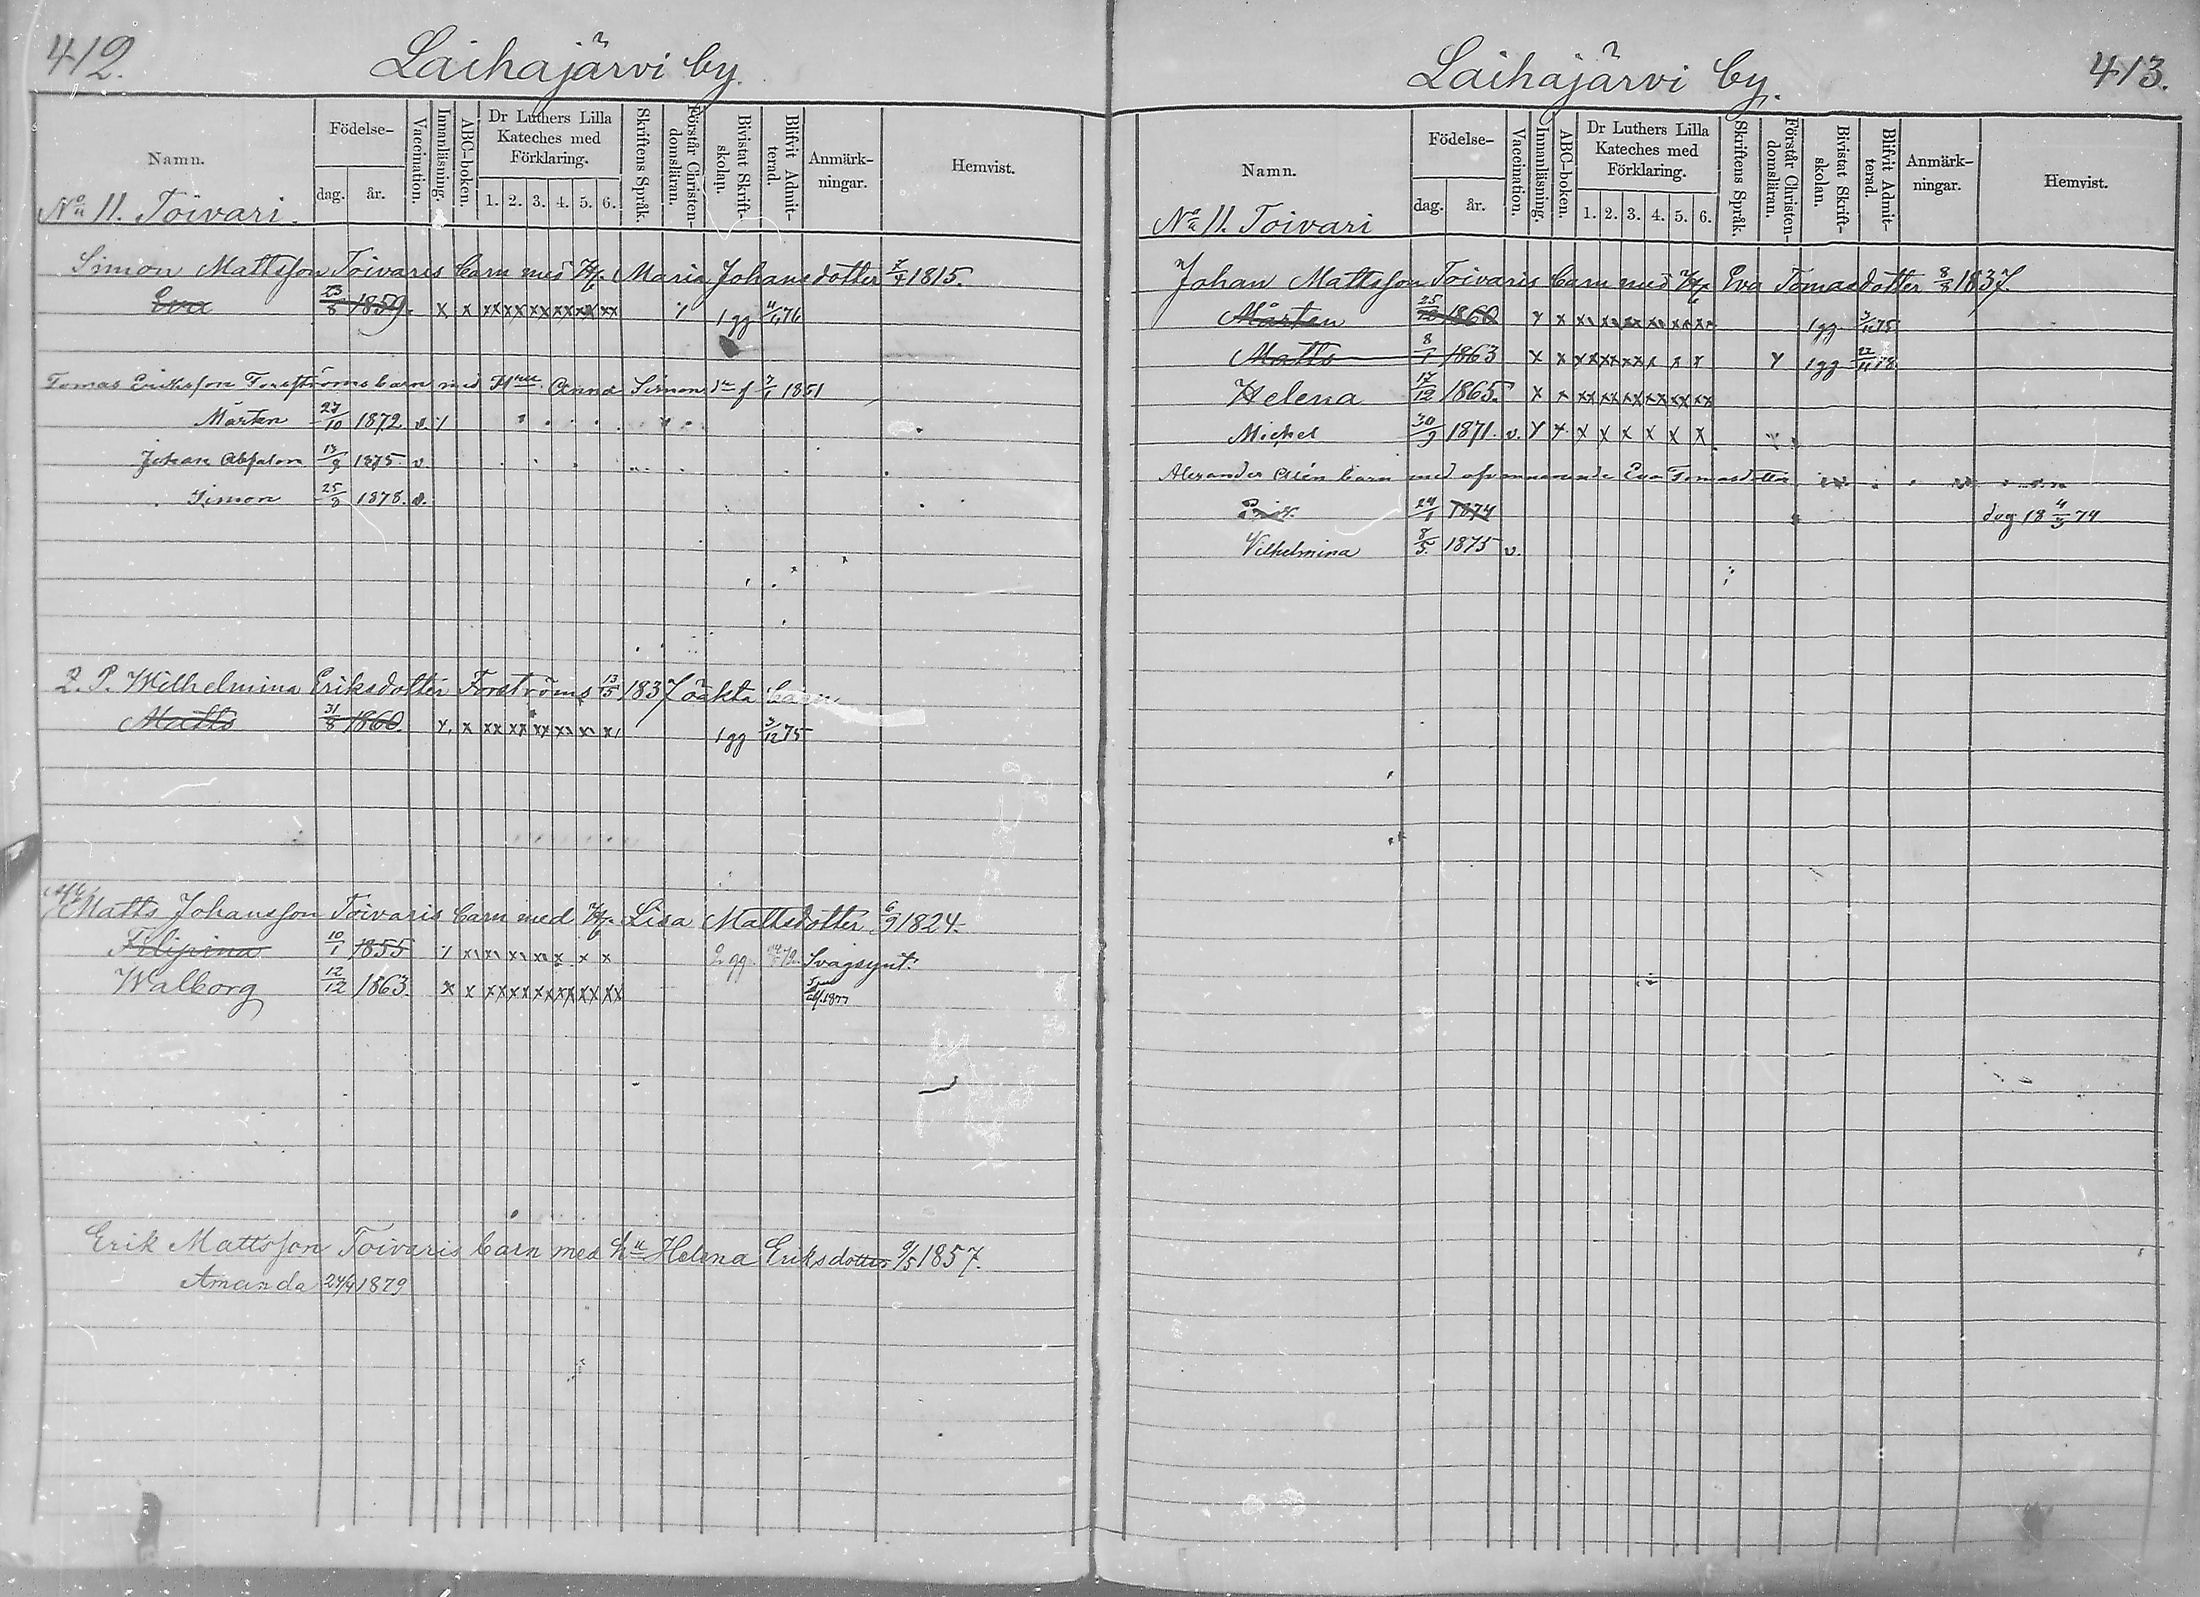 412.
Laihajärvi by.
Namn.
Födelse-
dag. år.
Vaccination.
Innanläsning.
ABC-boken.
Dr Luthers Lilla Kateches med Förklaring.
1. 2. 3. 4. 5. 6.
Skriftens Språk.
Förstår Christendomsläran.
Bivistat Skriftskolan.
Blifvit Admitterad.
Anmärkningar.
Hemvist.
No 11. Toivari.
Simon Mattsson Toivaris barn med H. Maria Johansdotter 7/4 1815.
Eva 23/8 1859. x x xx xx xx xx xx xx 1 gg 76
Tomas Eriksson Forsströms barn med Anna Simons 1851
Mårten 27/10 1872. v.
Johan Absalon 1875. v
Simon 25/8 1878. v.
Q. P. Wilhelmina Eriksdotter Forströms 13/5 1837 oäkta barn
Matts 31/8 1860. x x xx xx xx xx 1 gg 3/12 75
Matts Johansson Toivaris barn med H. Lisa Mattsdotter 6/9 1824.
Filipina 10/1 1855 2 gg 72. Svagsynt.
Walborg 12/12 1863. x x xx xx xx xx xx xx 1877
Erik Mattsson Toivaris barn med h Helena Eriksdotter 9/5 1857.
Amanda 24/4 1879
413.
Laihajärvi by.
Namn.
Födelse-
dag. år.
Vaccination.
Innanläsning.
ABC-boken.
Dr Luthers Lilla Kateches med Förklaring.
1. 2. 3. 4. 5. 6.
Skriftens Språk.
Förstår Christendomsläran.
Bivistat Skriftskolan.
Blifvit Admitterad.
Anmärkningar.
Hemvist.
No 11. Toivari
Johan Mattsson Toivaris barn med H. Eva Tomasdotter 8/8 1837.
Mårten 1860 1 gg 75
Matts 8/1 1863 x x 1 gg 78
Helena 17/12 1865. x x xx xx xx xx xx xx
Mickel 30/9 1871. v. x x x x x x x x
Alexander barn med Eva Tomasdotter
24/1 1874 dog 18 4/3 74
Vilhelmina 8/5 1875 v.